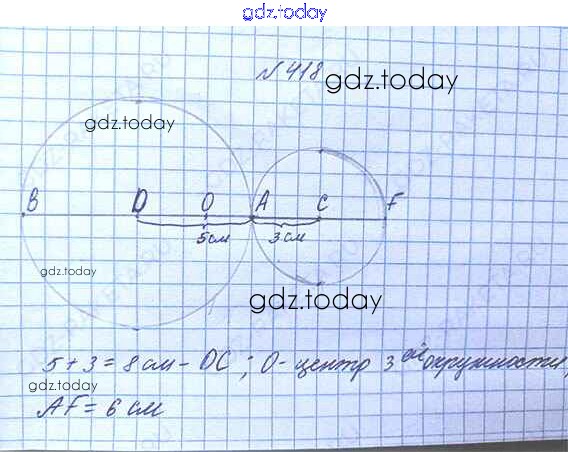 gdz.today
№ 418 gdz.today
gdz.today
B D O A C F
5 см 3 см
gdz.today
gdz.today
5 + 3 = 8 см - DC ; O - центр 3 ей окружности,
gdz.today
AF = 6 см